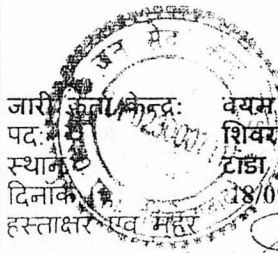 जन मेट
जारी कर्ता केन्द्र: वयम
पद: शिवर
स्थान टाडा
दिनांक 18/0
हस्ताक्षर एव महर